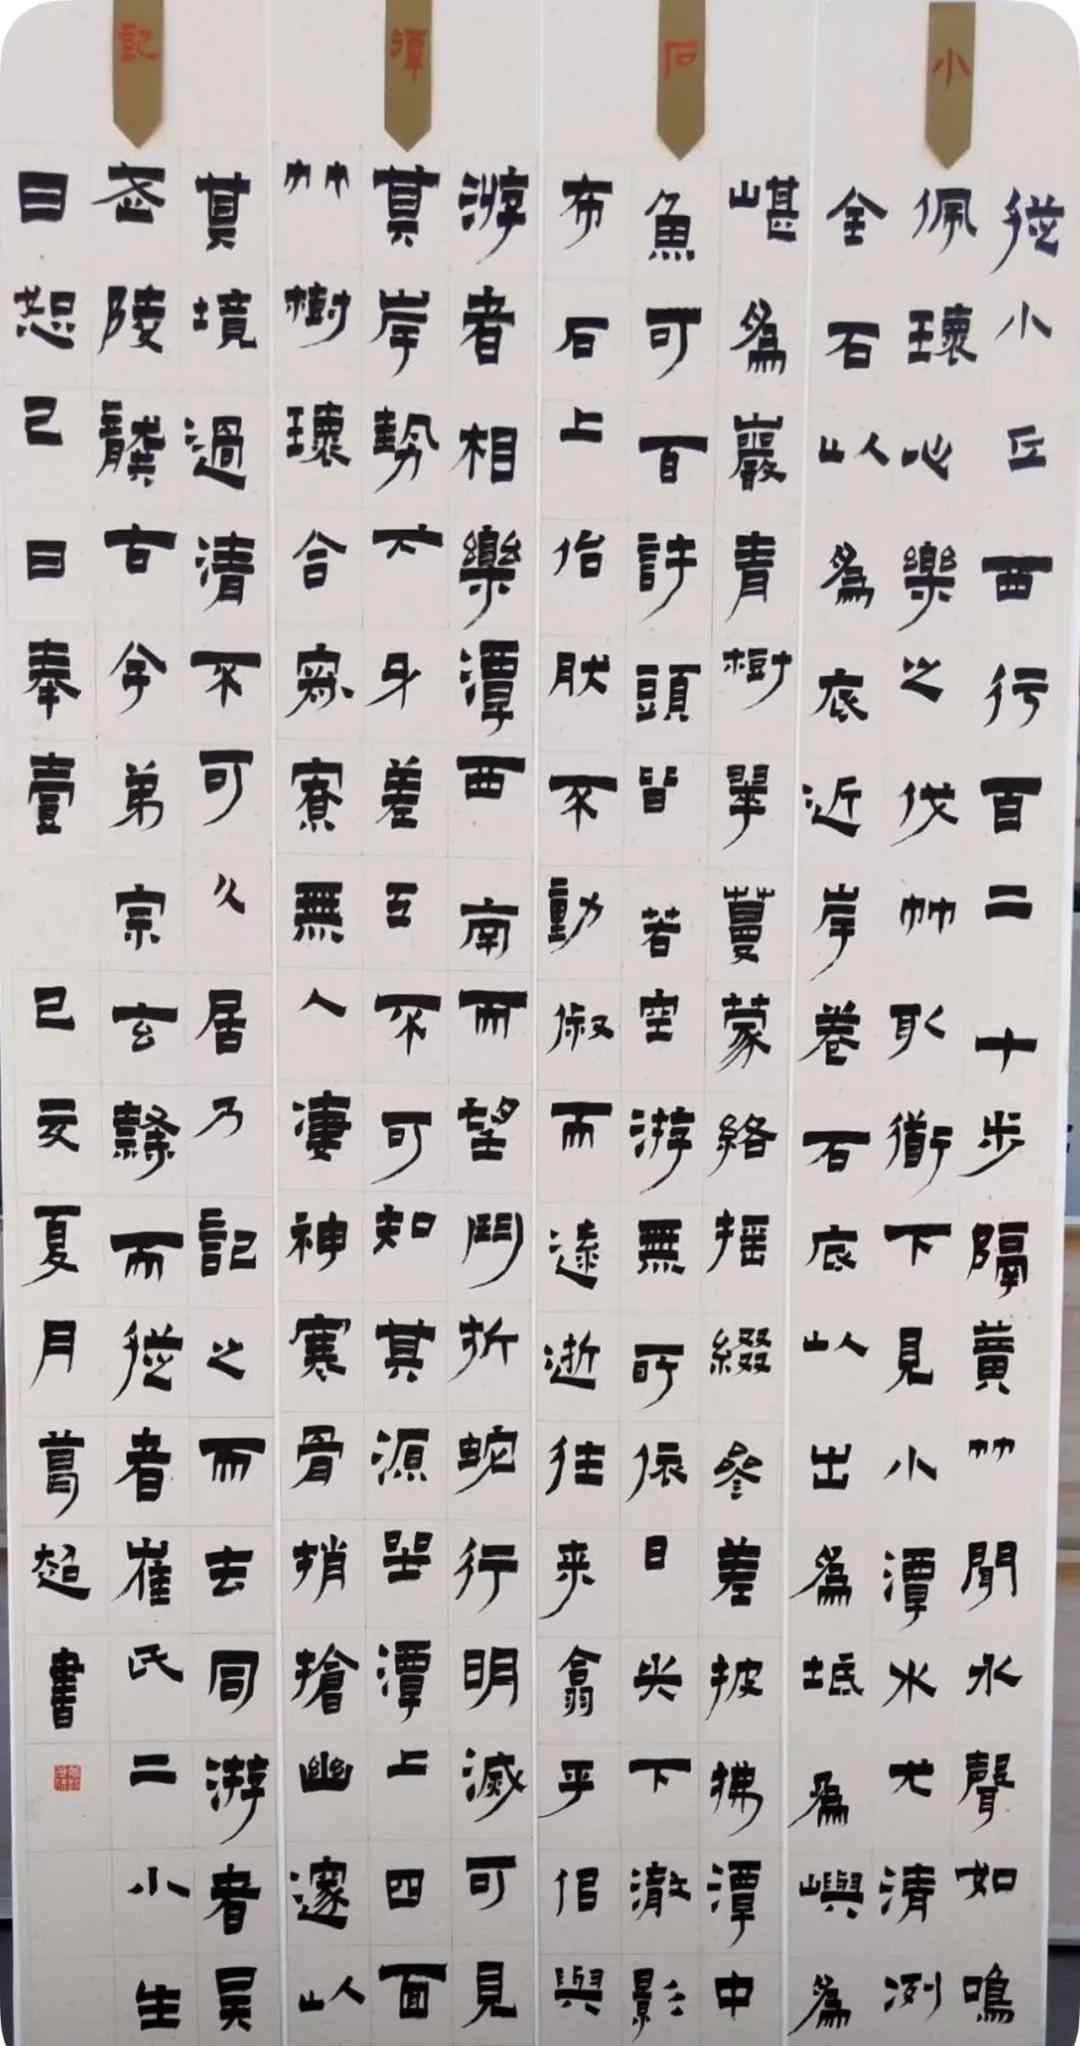 小石潭記
從小丘西行百二十步隔黃竹聞水聲如鳴
佩環心樂之伐竹取道下見小潭水尤清洌
全石以爲底近岸卷石底以出爲坻爲嶼爲
嵁爲巖青樹翠蔓蒙絡搖綴參差披拂潭中
魚可百許頭皆若空游無所依日光下澈影
布石上佁然不動俶而遠逝往來翕乎佀與
游者相樂潭西南而望鬥折蛇行明滅可見
其岸勢犬牙差互不可知其源坐潭上四面
竹樹環合寂寥無人凄神寒骨悄愴幽邃以
其境過清不可久居乃記之而去同游者吳
武陵龔古今弟宗玄隸而從者崔氏二小生
曰恕己曰奉壹 己亥夏月葛超書